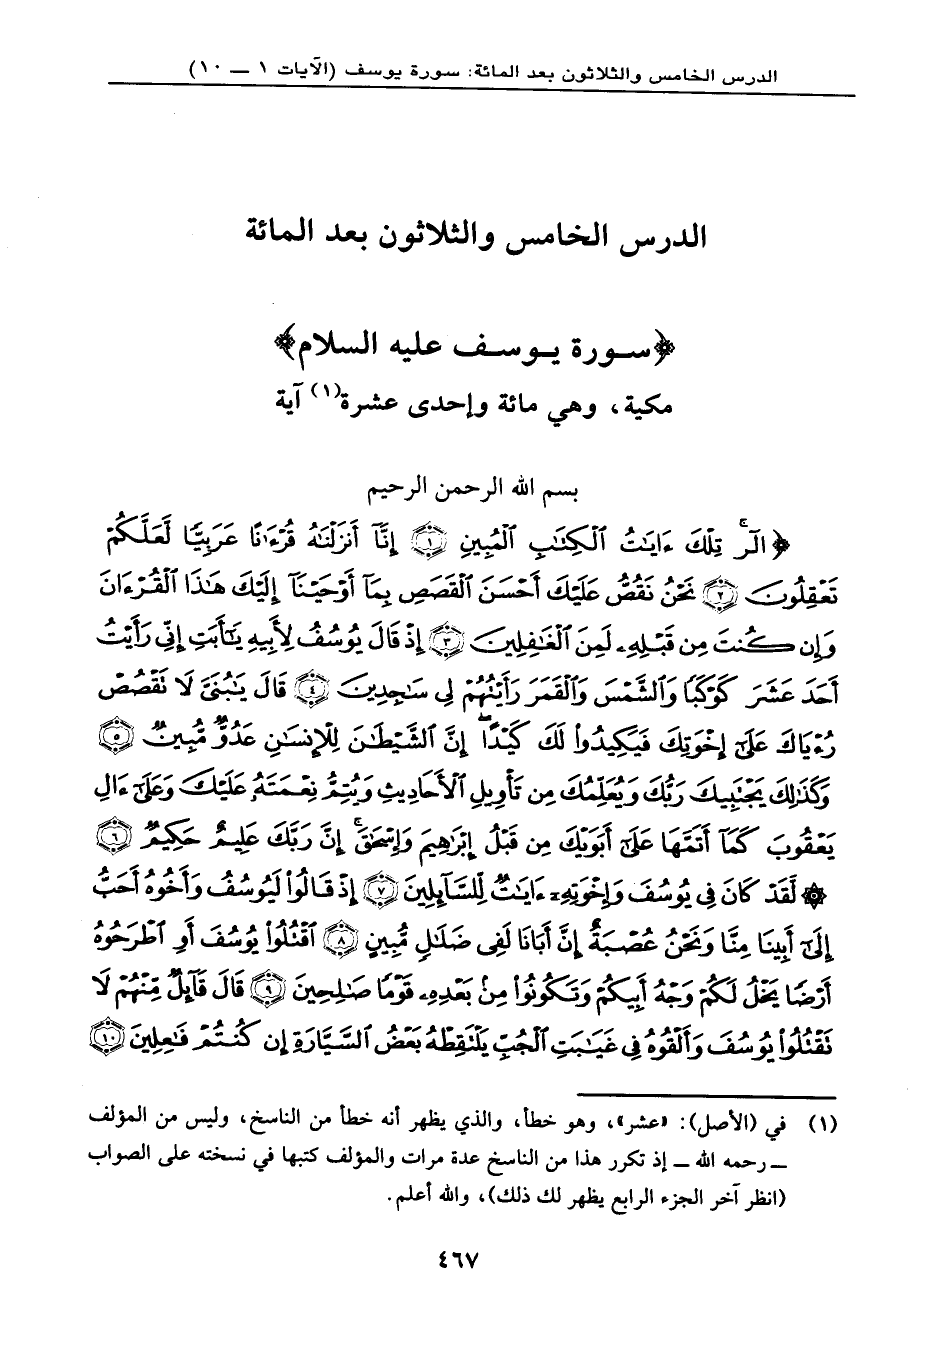 الدرس الخامس والثلاثون بعد المائة: سورة يوسف (الآيات ١ ــ ١٠)
الدرس الخامس والثلاثون بعد المائة
﴿سورة يوسف عليه السلام﴾
مكية، وهي مائة وإحدى عشرة(١) آية
بسم الله الرحمن الرحيم
﴿ الٓرۚ تِلۡكَ ءَايَٰتُ ٱلۡكِتَٰبِ ٱلۡمُبِينِ ١ إِنَّآ أَنزَلۡنَٰهُ قُرۡءَٰنًا عَرَبِيّٗا لَّعَلَّكُمۡ
تَعۡقِلُونَ ٢ نَحۡنُ نَقُصُّ عَلَيۡكَ أَحۡسَنَ ٱلۡقَصَصِ بِمَآ أَوۡحَيۡنَآ إِلَيۡكَ هَٰذَا ٱلۡقُرۡءَانَ
وَإِن كُنتَ مِن قَبۡلِهِۦ لَمِنَ ٱلۡغَٰفِلِينَ ٣ إِذۡ قَالَ يُوسُفُ لِأَبِيهِ يَٰٓأَبَتِ إِنِّي رَأَيۡتُ
أَحَدَ عَشَرَ كَوۡكَبٗا وَٱلشَّمۡسَ وَٱلۡقَمَرَ رَأَيۡتُهُمۡ لِي سَٰجِدِينَ ٤ قَالَ يَٰبُنَيَّ لَا تَقۡصُصۡ
رُءۡيَاكَ عَلَىٰٓ إِخۡوَتِكَ فَيَكِيدُواْ لَكَ كَيۡدًاۖ إِنَّ ٱلشَّيۡطَٰنَ لِلۡإِنسَٰنِ عَدُوّٞ مُّبِينٞ ٥
وَكَذَٰلِكَ يَجۡتَبِيكَ رَبُّكَ وَيُعَلِّمُكَ مِن تَأۡوِيلِ ٱلۡأَحَادِيثِ وَيُتِمُّ نِعۡمَتَهُۥ عَلَيۡكَ وَعَلَىٰٓ ءَالِ
يَعۡقُوبَ كَمَآ أَتَمَّهَا عَلَىٰٓ أَبَوَيۡكَ مِن قَبۡلُ إِبۡرَٰهِيمَ وَإِسۡحَٰقَۚ إِنَّ رَبَّكَ عَلِيمٌ حَكِيمٞ ٦
۞ لَّقَدۡ كَانَ فِي يُوسُفَ وَإِخۡوَتِهِۦٓ ءَايَٰتٞ لِّلسَّآئِلِينَ ٧ إِذۡ قَالُواْ لَيُوسُفُ وَأَخُوهُ أَحَبُّ
إِلَىٰٓ أَبِينَا مِنَّا وَنَحۡنُ عُصۡبَةٌ إِنَّ أَبَانَا لَفِي ضَلَٰلٖ مُّبِينٍ ٨ ٱقۡتُلُواْ يُوسُفَ أَوِ ٱطۡرَحُوهُ
أَرۡضٗا يَخۡلُ لَكُمۡ وَجۡهُ أَبِيكُمۡ وَتَكُونُواْ مِنۢ بَعۡدِهِۦ قَوۡمٗا صَٰلِحِينَ ٩ قَالَ قَآئِلٞ مِّنۡهُمۡ لَا
تَقۡتُلُواْ يُوسُفَ وَأَلۡقُوهُ فِي غَيَٰبَتِ ٱلۡجُبِّ يَلۡتَقِطۡهُ بَعۡضُ ٱلسَّيَّارَةِ إِن كُنتُمۡ فَٰعِلِينَ ١٠
(١) في (الأصل): «عشر»، وهو خطأ، والذي يظهر أنه خطأ من الناسخ، وليس من المؤلف
ــ رحمه الله ــ إذ تكرر هذا من الناسخ عدة مرات والمؤلف كتبها في نسخته على الصواب
(انظر آخر الجزء الرابع يظهر لك ذلك)، والله أعلم.
٤٦٧